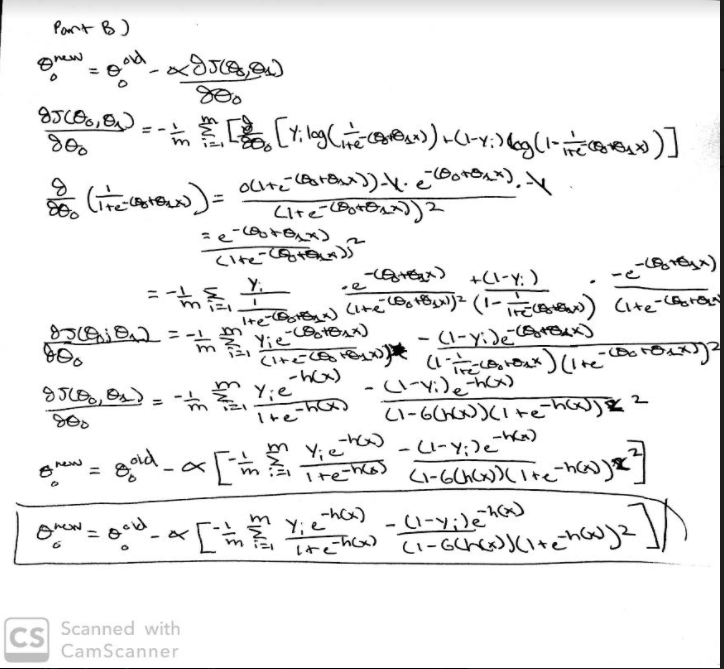 Part B)
θ₀ⁿᵉʷ = θ₀ᵒˡᵈ - α ∂J(θ₀,θ₁)/∂θ₀
∂J(θ₀,θ₁)/∂θ₀ = -1/m Σᵢ₌₁ᵐ [∂/∂θ₀ [Yᵢ log(1/(1+e^-(θ₀+θ₁x))) + (1-Yᵢ) log(1 - 1/(1+e^-(θ₀+θ₁x)))]]
∂/∂θ₀ (1/(1+e^-(θ₀+θ₁x))) = (0(1+e^-(θ₀+θ₁x)) - 1 · e^-(θ₀+θ₁x) · -1)/(1+e^-(θ₀+θ₁x))²
= e^-(θ₀+θ₁x)/(1+e^-(θ₀+θ₁x))²
= -1/m Σᵢ₌₁ Yᵢ/(1/(1+e^-(θ₀+θ₁x))) · e^-(θ₀+θ₁x)/(1+e^-(θ₀+θ₁x))² + (1-Yᵢ)/(1 - 1/(1+e^-(θ₀+θ₁x))) · -e^-(θ₀+θ₁x)/(1+e^-(θ₀+θ₁x
∂J(θ₀,θ₁)/∂θ₀ = -1/m Σᵢ₌₁ᵐ Yᵢe^-(θ₀+θ₁x)/(1+e^-(θ₀+θ₁x)) - (1-Yᵢ)e^-(θ₀+θ₁x)/((1 - 1/(1+e^-(θ₀+θ₁x)))(1+e^-(θ₀+θ₁x))²)
∂J(θ₀,θ₁)/∂θ₀ = -1/m Σᵢ₌₁ᵐ Yᵢe^-h(x)/(1+e^-h(x)) - (1-Yᵢ)e^-h(x)/((1-σ(h(x)))(1+e^-h(x))²)
θ₀ⁿᵉʷ = θ₀ᵒˡᵈ - α [-1/m Σᵢ₌₁ᵐ Yᵢe^-h(x)/(1+e^-h(x)) - (1-Yᵢ)e^-h(x)/((1-σ(h(x)))(1+e^-h(x))²)]
θ₀ⁿᵉʷ = θ₀ᵒˡᵈ - α [-1/m Σᵢ₌₁ᵐ Yᵢe^-h(x)/(1+e^-h(x)) - (1-Yᵢ)e^-h(x)/((1-σ(h(x)))(1+e^-h(x))²)]
CS Scanned with
CamScanner